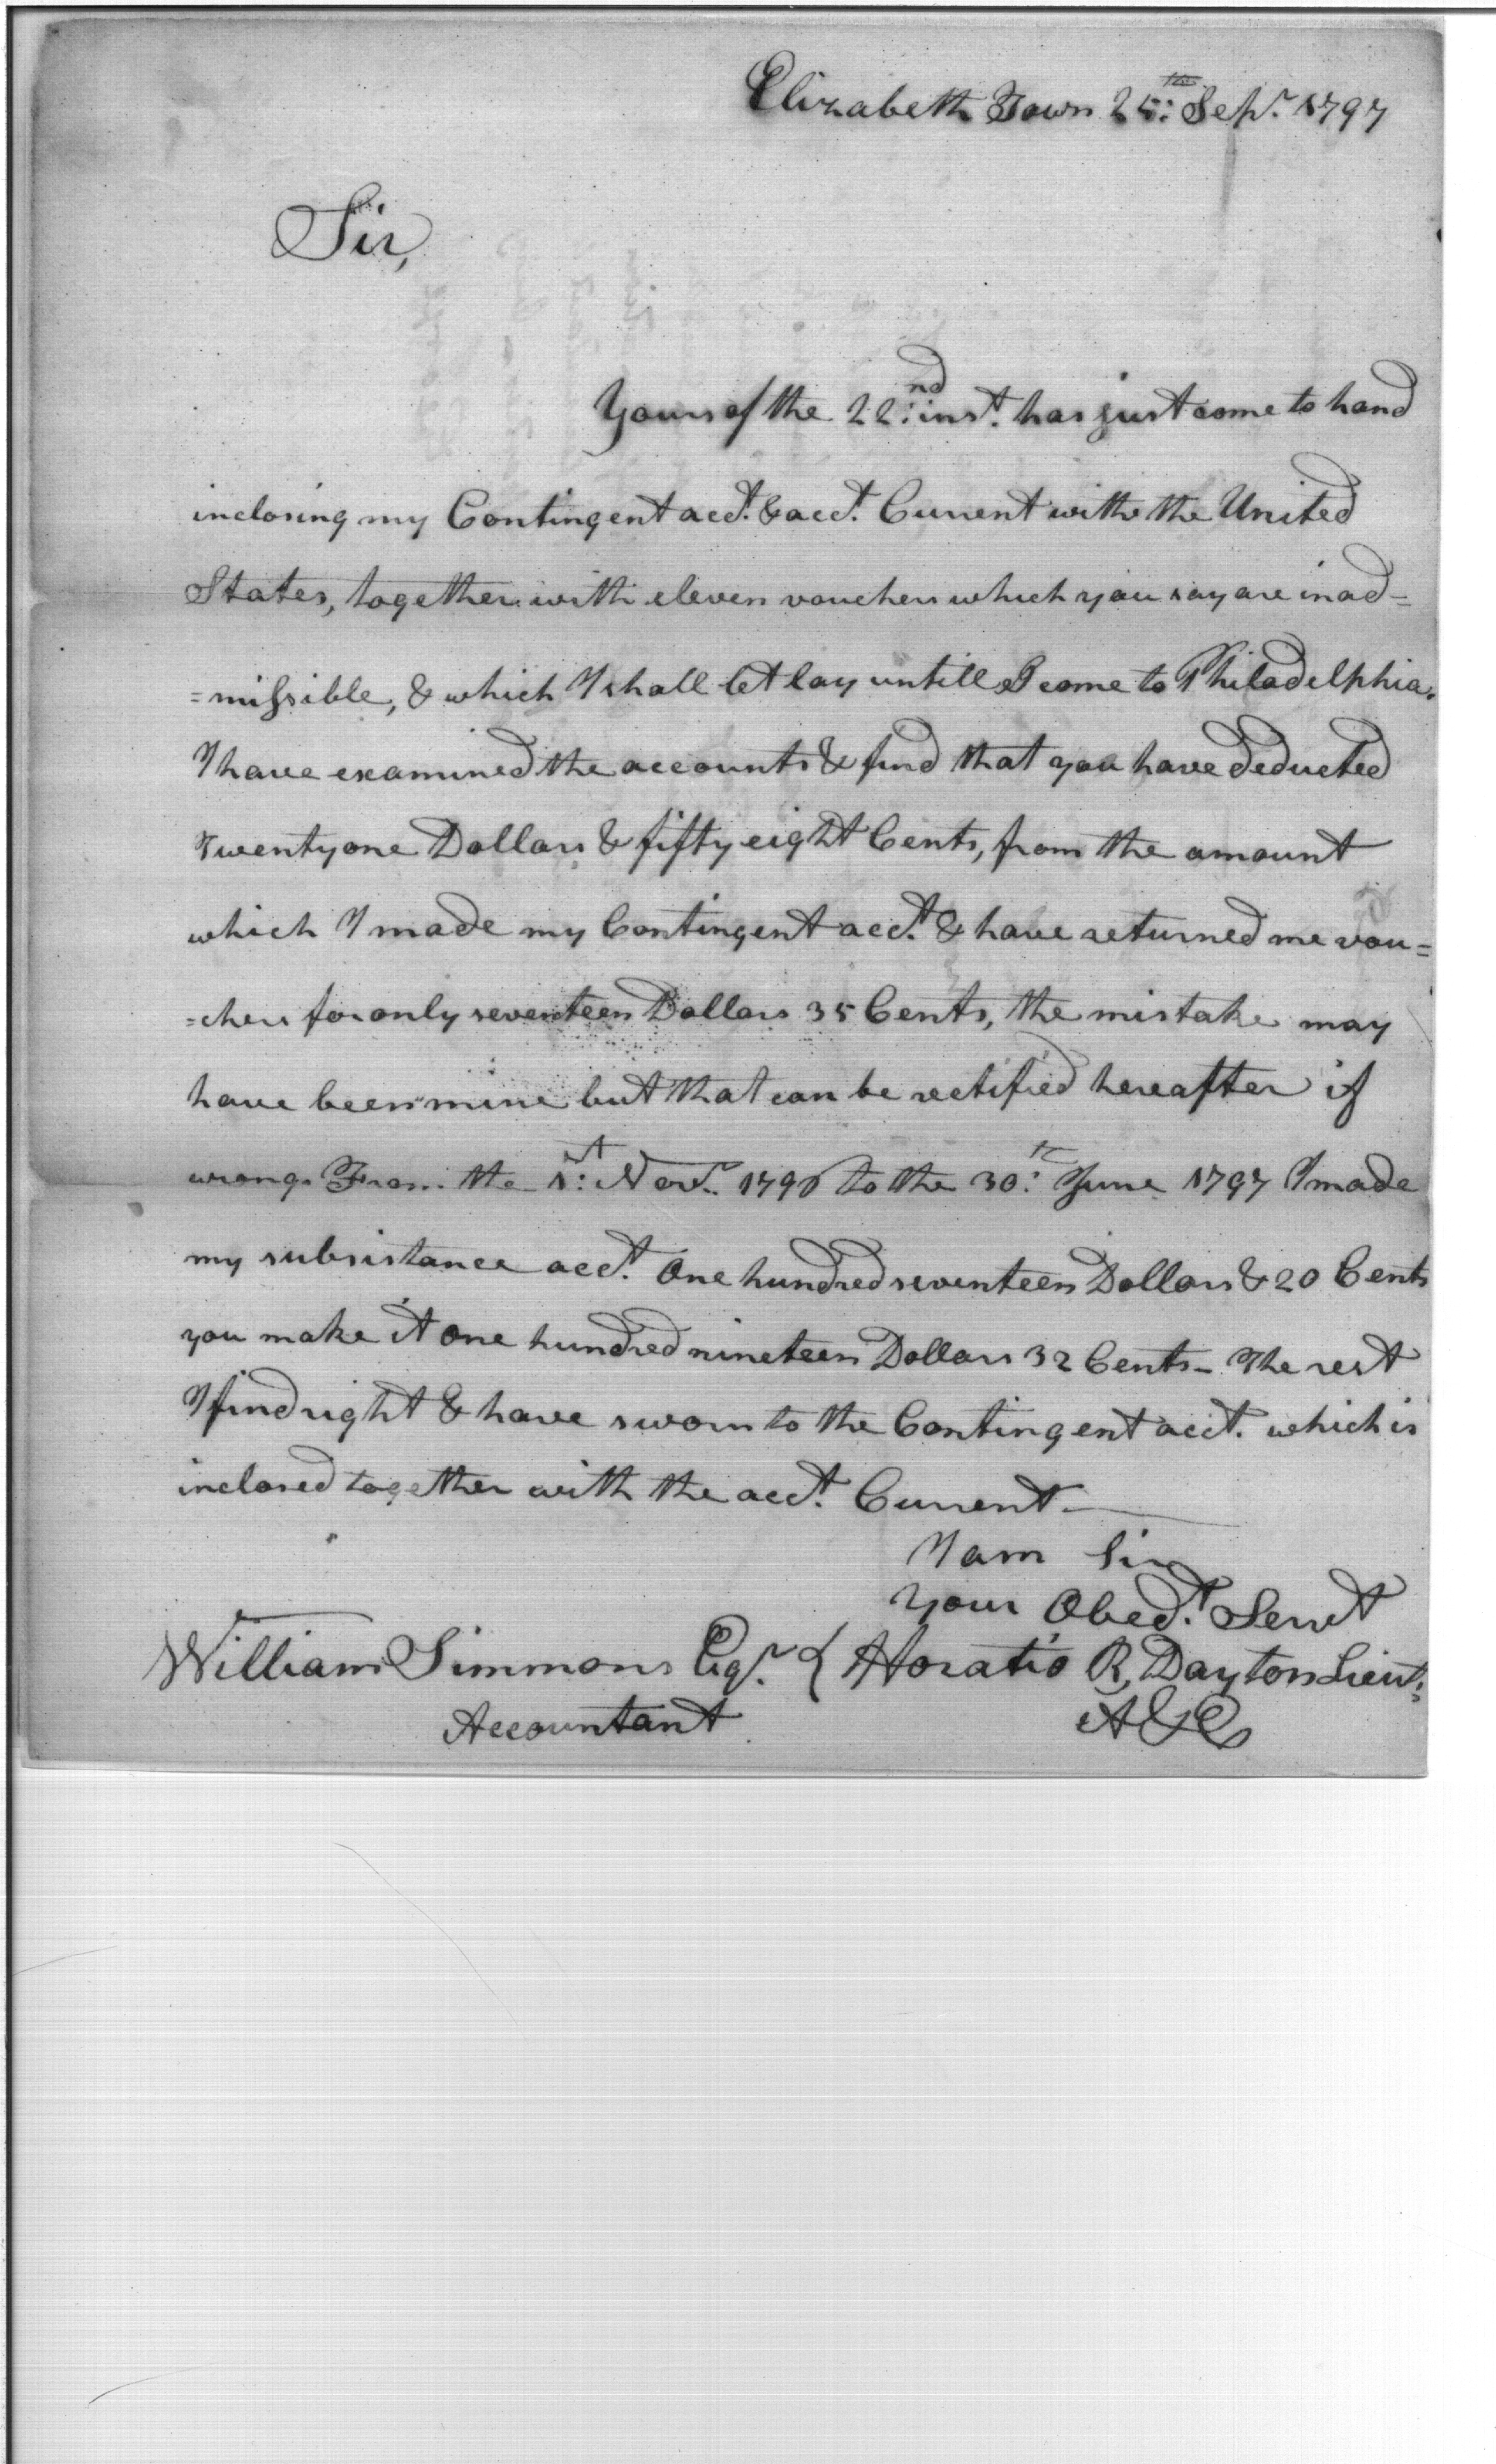 Elizabeth Town 25:th Sepr. 1797
Sir,
Yours of the 22:nd inst. has just come to hand
inclosing my Contingent acct. & acct. Current with the United
States, together with eleven vouchers which you say are inad=
=missible, & which I shall let lay untill I come to Philadelphia.
I have examined the accounts & find that you have deducted
Twenty one Dollars & fifty eight Cents, from the amount
which I made my Contingent acct. & have returned me vou=
=chers for only seventeen Dollars 35 Cents, the mistake may
have been mine but that can be rectified hereafter if
wrong. From the 1:st Novr. 1796 to the 30:th June 1797 I made
my subsistance acct. One hundred seventeen Dollars & 20 Cents
you make it One hundred nineteen Dollars 32 Cents - The rest
I find right & have sworn to the Contingent acct. which is
inclosed together with the acct. Current -
I am Sir
Your Obedt. Servt
William Simmons Esqr. { Horatio R, Dayton Lieut:
Accountant A&E